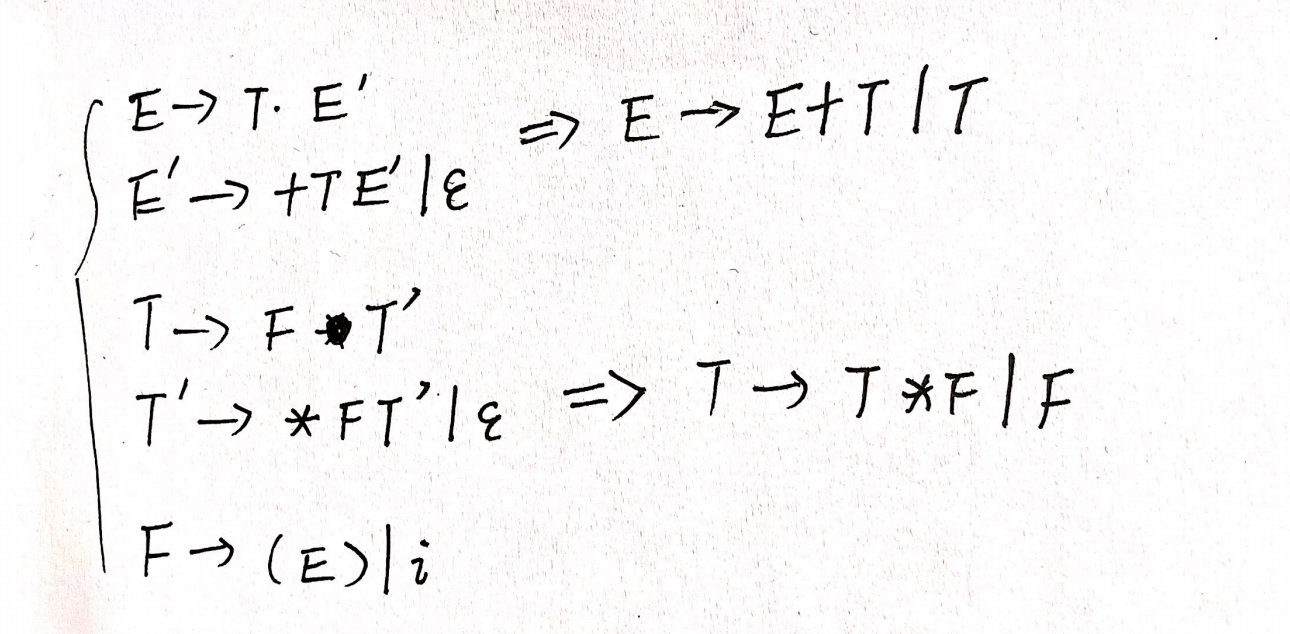 E → T · E' ⇒ E → E+T | T
E' → +TE' | ε
T → F T'
T' → *FT' | ε ⇒ T → T*F | F
F → (E) | i